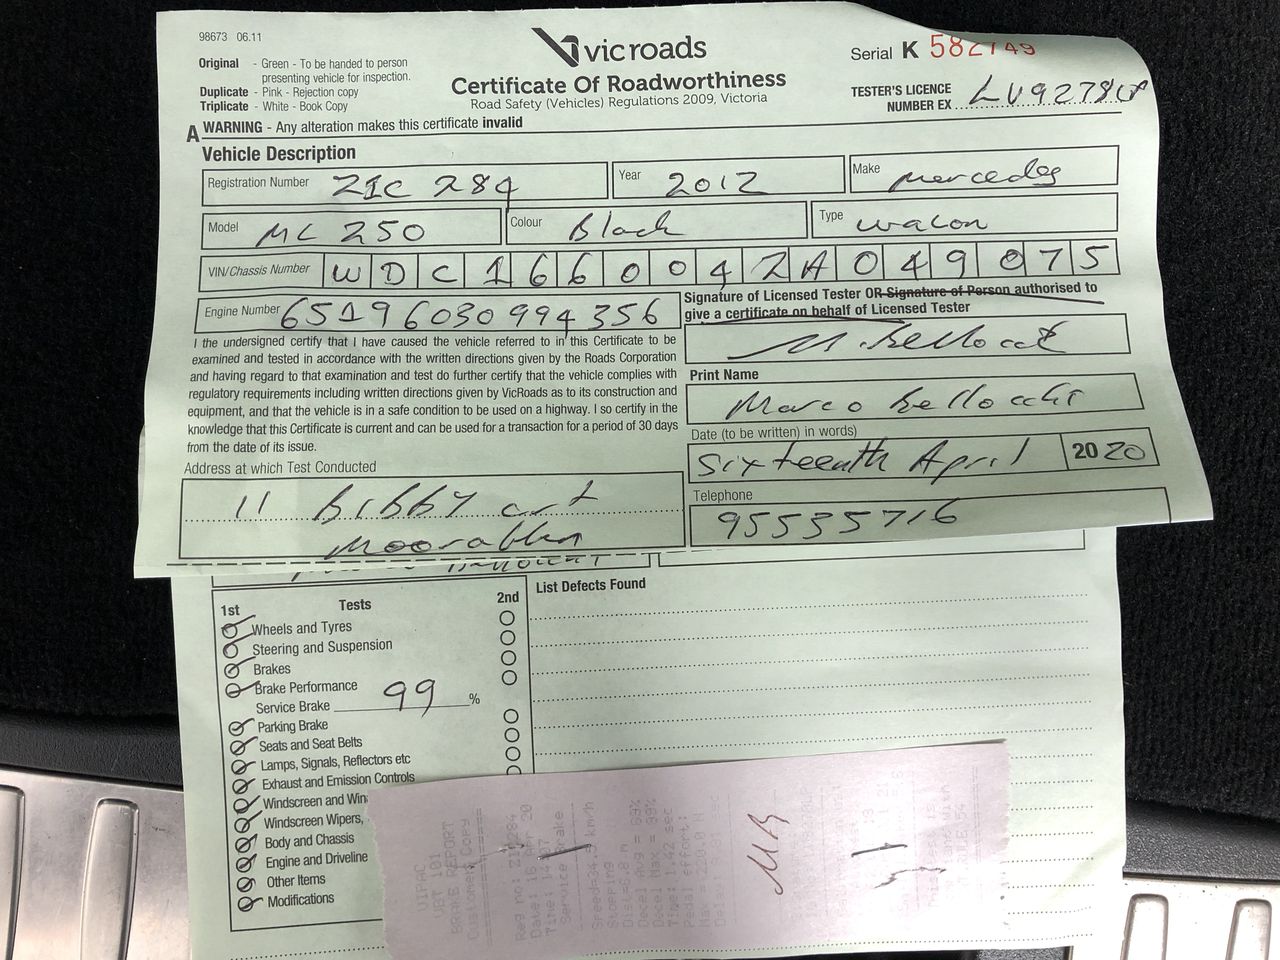 98673 06.11
Original - Green - To be handed to person
presenting vehicle for inspection.
Duplicate - Pink - Rejection copy
Triplicate - White - Book Copy
vicroads
Certificate Of Roadworthiness
Road Safety (Vehicles) Regulations 2009, Victoria
Serial K 582749
TESTER'S LICENCE
NUMBER EX
A WARNING - Any alteration makes this certificate invalid
Vehicle Description
Registration Number Z1C 284 Year 2012 Make Mercedes
Model ML 250 Colour Black Type wacon
VIN/Chassis Number WDC1660042A049075
Engine Number 65196030994356
Signature of Licensed Tester OR Signature of Person authorised to
give a certificate on behalf of Licensed Tester
I the undersigned certify that I have caused the vehicle referred to in this Certificate to be
examined and tested in accordance with the written directions given by the Roads Corporation
and having regard to that examination and test do further certify that the vehicle complies with
regulatory requirements including written directions given by VicRoads as to its construction and
equipment, and that the vehicle is in a safe condition to be used on a highway. I so certify in the
knowledge that this Certificate is current and can be used for a transaction for a period of 30 days
from the date of its issue.
Print Name
Marco Bellocchi
Date (to be written) in words)
Sixteenth April 2020
Address at which Test Conducted
11 bibby crt
Moorabbin
Telephone
95535716
1st Tests 2nd
Wheels and Tyres
Steering and Suspension
Brakes
Brake Performance
Service Brake 99 %
Parking Brake
Seats and Seat Belts
Lamps, Signals, Reflectors etc
Exhaust and Emission Controls
Windscreen and Win
Windscreen Wipers,
Body and Chassis
Engine and Driveline
Other Items
Modifications
List Defects Found
VBT 101
BRAKE REPORT
Customer Copy